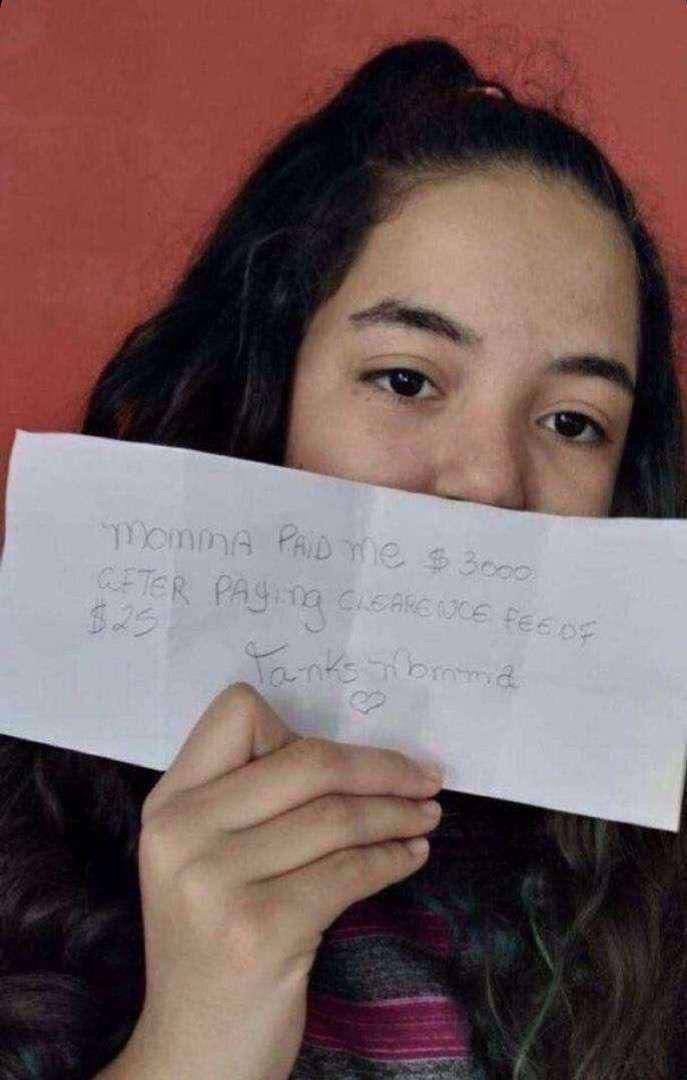 MOMMA PAID Me $3000
AFTER PAying CLEARENCE FEE OF
$25
Tanks Momma